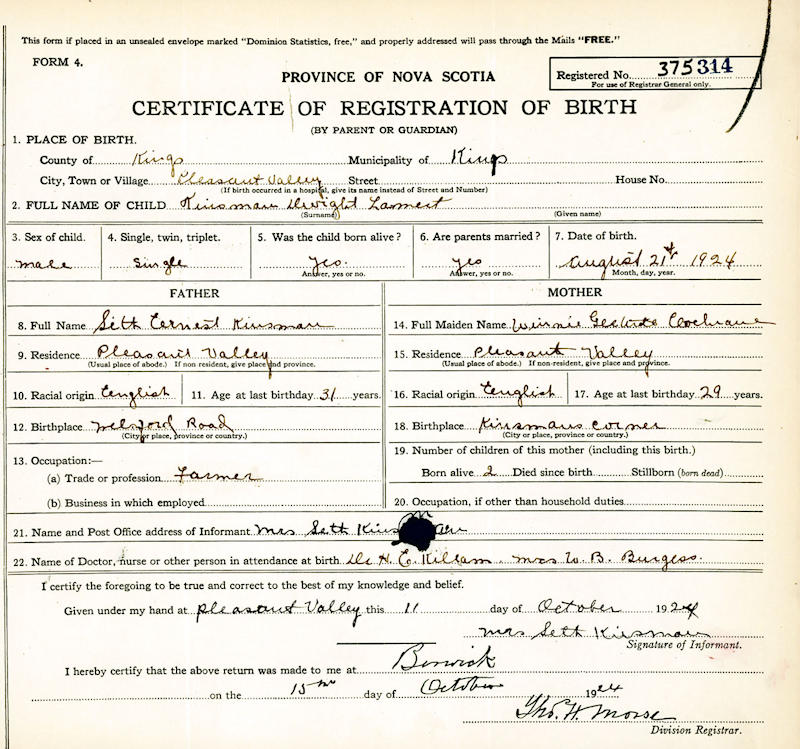 This form if placed in an unsealed envelope marked "Dominion Statistics, free," and properly addressed will pass through the Mails "FREE."
FORM 4.
PROVINCE OF NOVA SCOTIA
Registered No. 375314
For use of Registrar General only.
CERTIFICATE OF REGISTRATION OF BIRTH
(BY PARENT OR GUARDIAN)
1. PLACE OF BIRTH.
County of Kings Municipality of Kings
City, Town or Village Pleasant Valley Street House No.
(If birth occurred in a hospital, give its name instead of Street and Number)
2. FULL NAME OF CHILD Kinsman Dwight Lamert
(Surname) (Given name)
3. Sex of child. 4. Single, twin, triplet. 5. Was the child born alive? 6. Are parents married? 7. Date of birth.
male Single Yes. yes August 21st 1924
Answer, yes or no. Answer, yes or no. Month, day, year.
FATHER MOTHER
8. Full Name Seth Earnest Kinsman 14. Full Maiden Name Winnie Cochrane
9. Residence Pleasant Valley 15. Residence Pleasant Valley
(Usual place of abode.) If non resident, give place and province. (Usual place of abode.) If non-resident, give place and province.
10. Racial origin English 11. Age at last birthday 31 years. 16. Racial origin English 17. Age at last birthday 29 years.
12. Birthplace Welsford Road 18. Birthplace Kinsmans Corner
(City or place, province or country.) (City or place, province or country.)
13. Occupation:— 19. Number of children of this mother (including this birth.)
(a) Trade or profession Farmer Born alive 2 Died since birth Stillborn (born dead)
(b) Business in which employed 20. Occupation, if other than household duties
21. Name and Post Office address of Informant Mrs Seth Kinsman
22. Name of Doctor, nurse or other person in attendance at birth Dr H. E. Killam. Mrs W. B. Burgess.
I certify the foregoing to be true and correct to the best of my knowledge and belief.
Given under my hand at Pleasant Valley this 11 day of October 1924
Mrs Seth Kinsman
Signature of Informant.
I hereby certify that the above return was made to me at Berwick
on the 15th day of October 1924
Thos. H. Morse
Division Registrar.